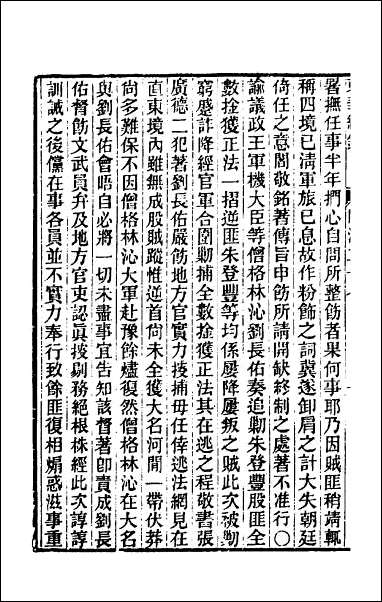 署撫任事半年捫心自問所整飭者果何事耶乃因賊匪稍靖輒
稱四境已清軍旅已息故作粉飾之詞冀遂卸肩之計大失朝廷
倚任之意閻敬銘著傳旨申飭所請開缺終制之處著不准行○
諭議政王軍機大臣等僧格林沁劉長佑奏追勦朱登豐股匪全
數擒獲正法一摺逆匪朱登豐等均係屢降屢叛之賊此次被勦
窮蹙詐降經官軍合圍勦捕全數擒獲正法其在逃之程敬書張
廣德二犯著劉長佑嚴飭地方官實力搜捕毋任倖逃法網見在
直東境內雖無成股賊蹤惟逆首尚未全獲大名河間一帶伏莽
尚多難保不因僧格林沁大軍赴豫餘燼復然僧格林沁在大名
與劉長佑會晤自必將一切未盡事宜告知該督著即責成劉長
佑督飭文武員弁及地方官吏認真搜剔務絕根株經此次諄諄
訓誡之後儻在事各員並不實力奉行致餘匪復相煽惑滋事重